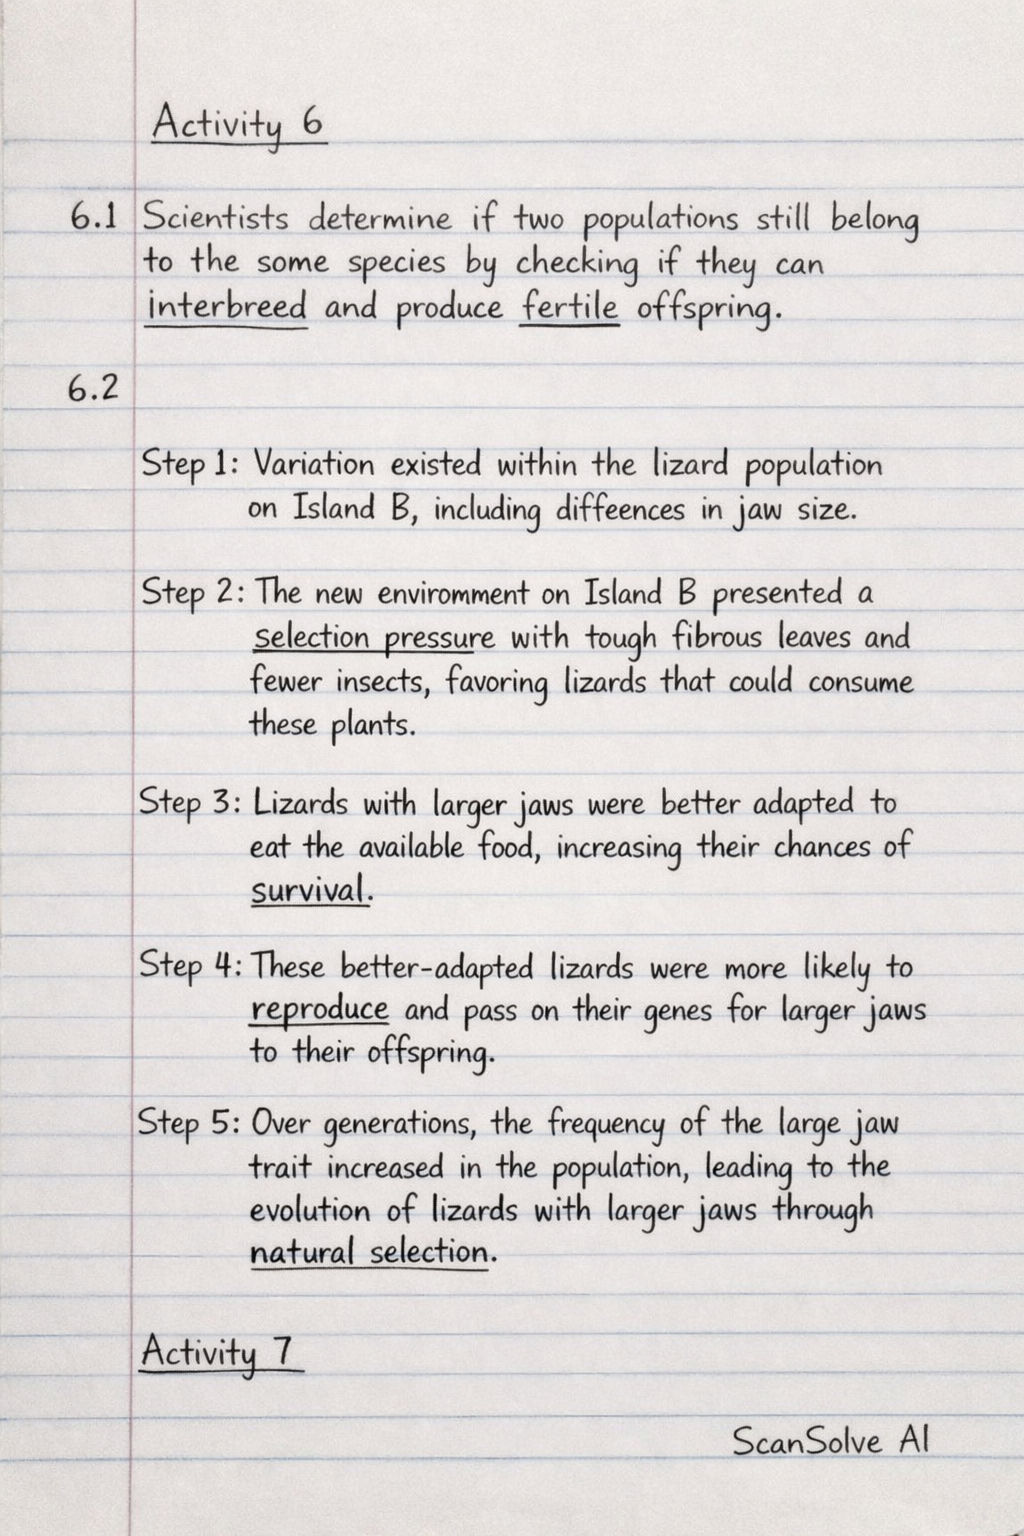 Activity 6
6.1 Scientists determine if two populations still belong
to the some species by checking if they can
interbreed and produce fertile offspring.
6.2
Step 1: Variation existed within the lizard population
on Island B, including diffeences in jaw size.
Step 2: The new enviromment on Island B presented a
selection pressure with tough fibrous leaves and
fewer insects, favoring lizards that could consume
these plants.
Step 3: Lizards with larger jaws were better adapted to
eat the available food, increasing their chances of
survival.
Step 4: These better-adapted lizards were more likely to
reproduce and pass on their genes for larger jaws
to their offspring.
Step 5: Over generations, the frequency of the large jaw
trait increased in the population, leading to the
evolution of lizards with larger jaws through
natural selection.
Activity 7
ScanSolve AI